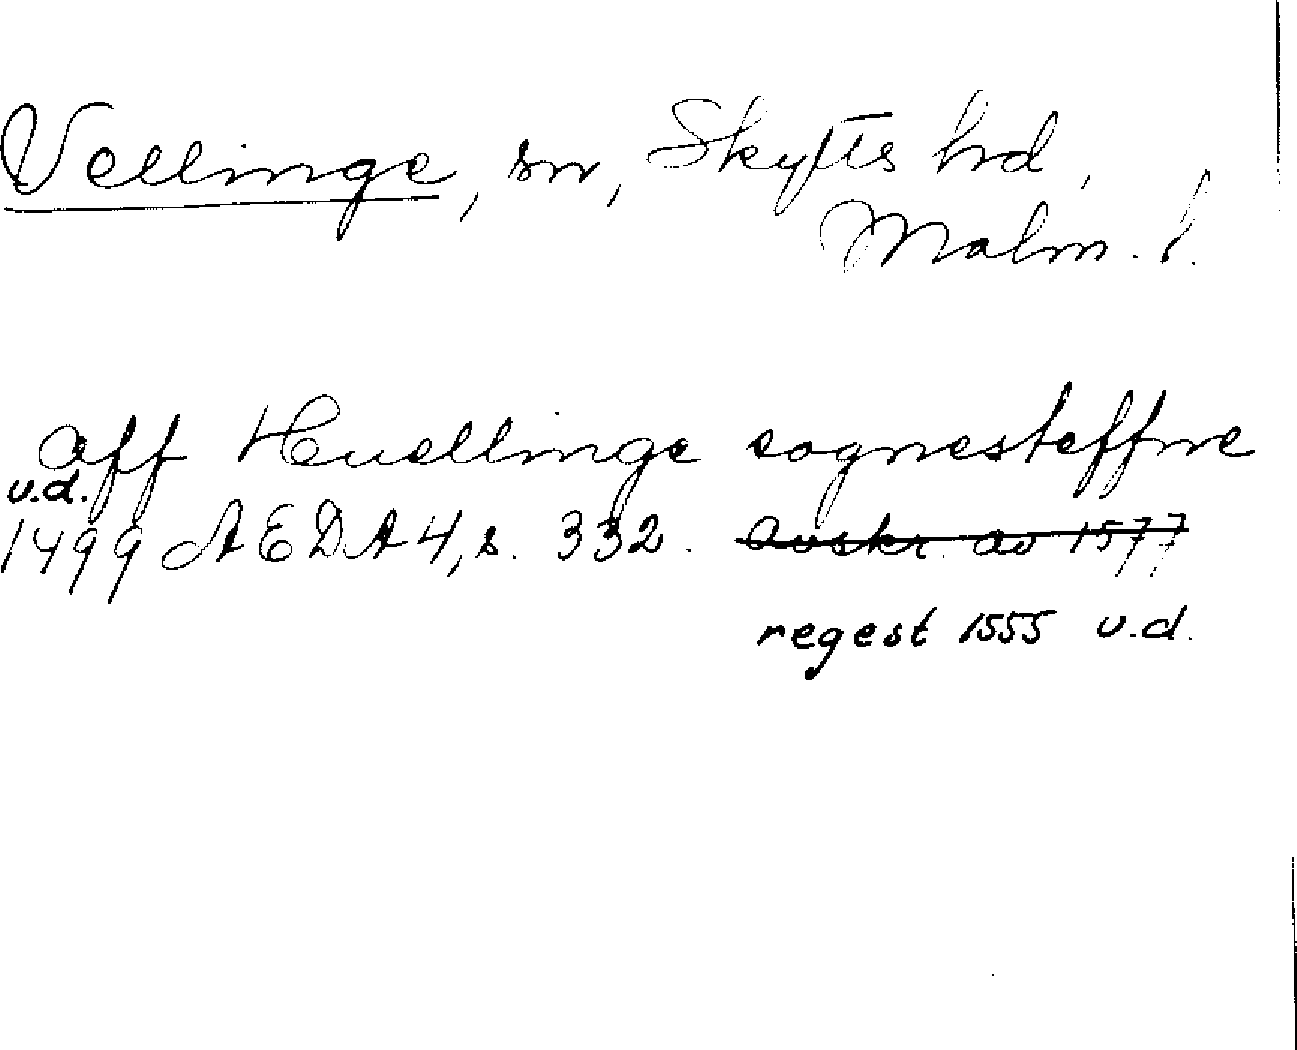 Vellinge, sn, Skytts hd,
Malm. l.
aff Huellinge sognesteffne
u.d.
1499 ÆDA 4, s. 332. Avskr. av 1577
regest 1555 u.d.